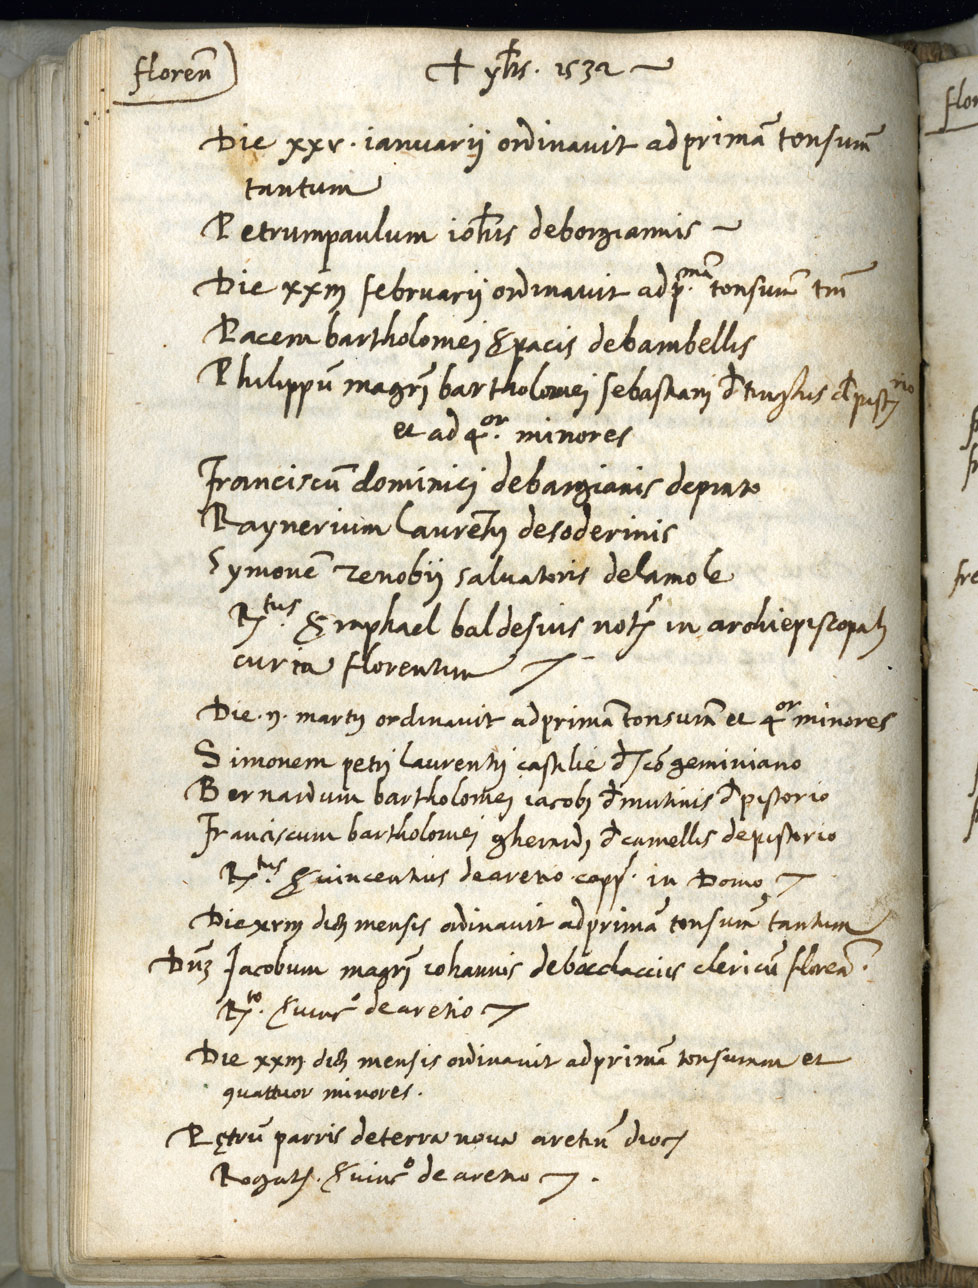 floren̄
+ yh̄s. 1532 ~
Die xxv. ianuarij ordinavit ad primā tonsurā
tantum
Petrumpaulum ioh̄is de borgiannis ~
Die xxiij februarij ordinavit ad p.mā tonsurā tm̄
Pacem bartholomei s pacis de bambellis
Philippū magr̄i bartholomei sebastiani d̄ d̄ pistorio
et ad 4or. minores
Franciscū dominici de bargianis de prato
Raynerium laurētij de soderinis
Symonē zenobij salvatoris de la mole
Rtus. s raphael baldesius notſ in archiepiscopali
curia florentina
Die. ij. martij ordinavit ad primā tonsurā et 4or minores
Simonem petri laurentij castilie d̄ scō geminiano
Bernardum bartholomei iacobi d̄ mutinis d̄ pistorio
Franciscum bartholomei gherardi d̄ camellis de pistorio
Rtus. s vincentius de aretio capp. in Domo
Die xviij dicti mensis ordinavit ad primā tonsurā tantum
Dn̄ʒ Jacobum magr̄i iohannis de baccelaccijs clericū floren̄.
Rto. s vinco de aretio
Die xxiij dicti mensis ordinavit ad primā tonsuram et
quattuor minores.
Petrū parris de terra nova aretin̄ dioc
Rogatſ. s vinco de aretio